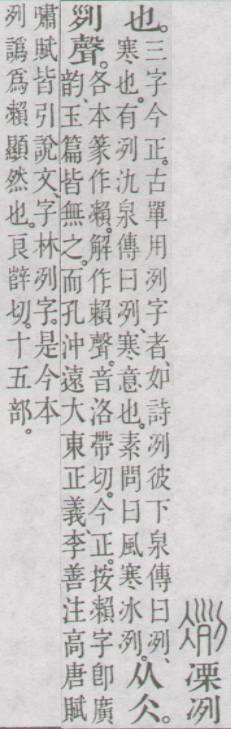 凓冽
也。
三字今正。古單用冽字者、如詩冽彼下泉傳曰冽、
寒也。有冽氿泉傳曰冽、寒意也。素問曰風寒冰冽。
从仌。
𠛱聲。
各本篆作賴。解作賴聲。音洛帶切。今正。按賴字卽廣
韵、玉篇皆無之。而孔沖遠大東正義、李善注高唐賦
嘯賦皆引說文、字林冽字。是今本
冽譌爲賴顯然也。良辥切。十五部。